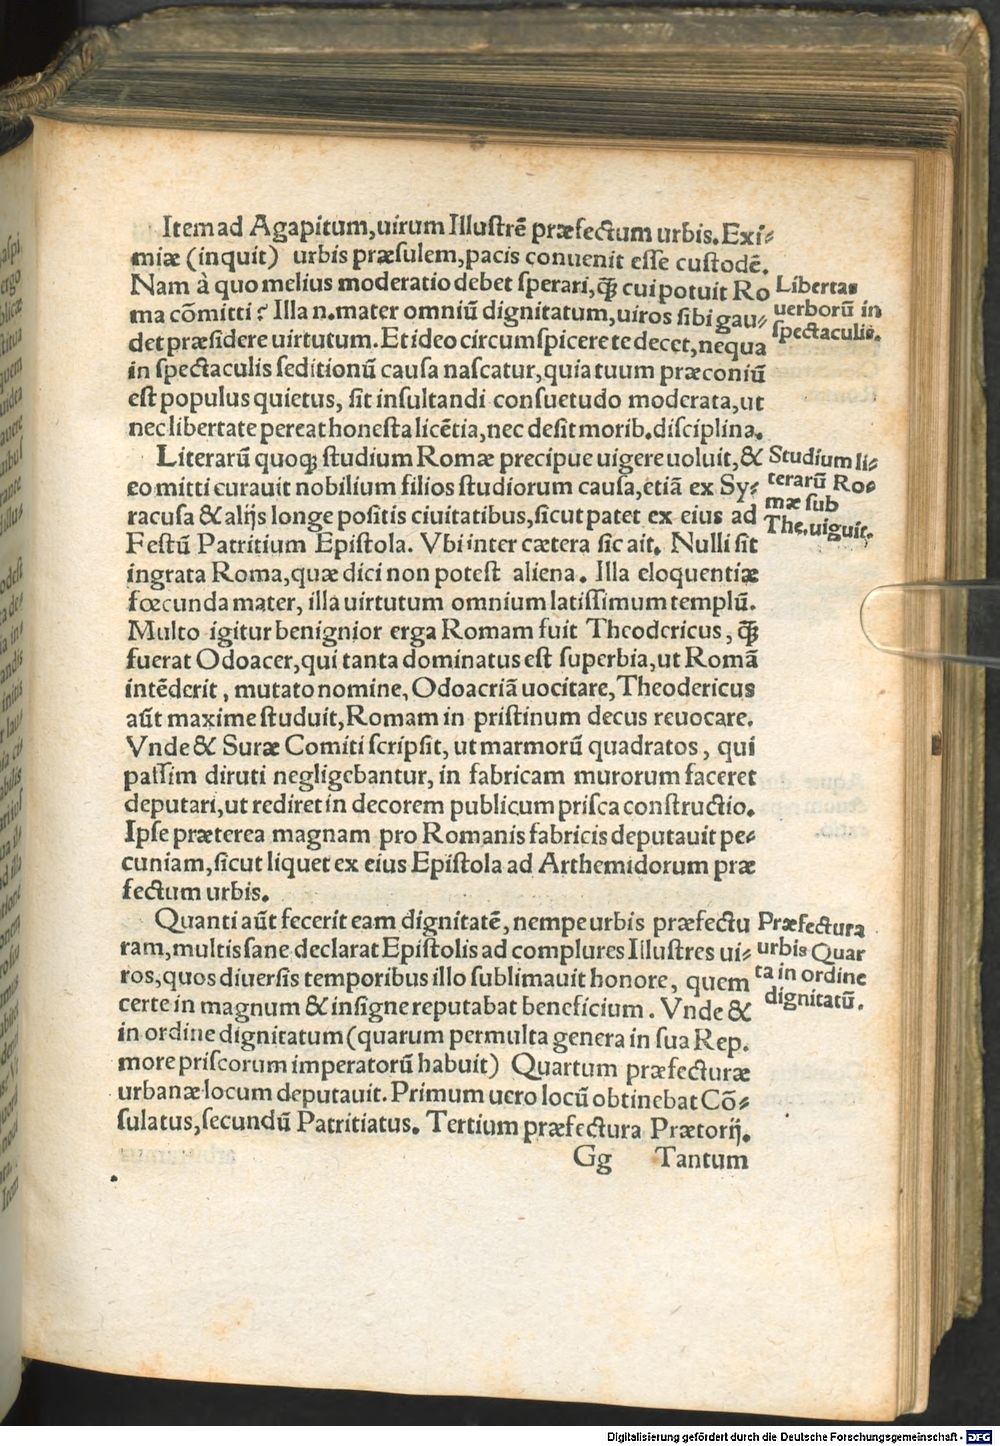 Item ad Agapitum, uirum Illustrē præfectum urbis. Exi⸗
miæ (inquit) urbis præsulem, pacis conuenit esse custodē.
Nam à quo melius moderatio debet sperari, ꝗ̃ cui potuit Ro
ma cōmitti? Illa n. mater omniū dignitatum, uiros sibi gau⸗
det præsidere uirtutum. Et ideo circumspicere te decet, ne qua
in spectaculis seditionū causa nascatur, quia tuum præconiū
est populus quietus, sit insultandi consuetudo moderata, ut
nec libertate pereat honesta licētia, nec desit morib. disciplina.
Libertas
uerborū in
spectaculis.
Literarū quoq; studium Romæ precipue uigere uoluit, &
eo mitti curauit nobilium filios studiorum causa, etiā ex Sy⸗
racusa & alijs longe positis ciuitatibus, sicut patet ex eius ad
Festū Patritium Epistola. Vbi inter cætera sic ait. Nulli sit
ingrata Roma, quæ dici non potest aliena. Illa eloquentiæ
fœcunda mater, illa uirtutum omnium latissimum templū.
Multo igitur benignior erga Romam fuit Theodericus, ꝗ̃
fuerat Odoacer, qui tanta dominatus est superbia, ut Romā
intēderit, mutato nomine, Odoacriā uocitare, Theodericus
aūt maxime studuit, Romam in pristinum decus reuocare.
Vnde & Suræ Comiti scripsit, ut marmorū quadratos, qui
passim diruti negligebantur, in fabricam murorum faceret
deputari, ut rediret in decorem publicum prisca constructio.
Ipse præterea magnam pro Romanis fabricis deputauit pe⸗
cuniam, sicut liquet ex eius Epistola ad Arthemidorum præ
fectum urbis.
Studium li⸗
terarū Ro⸗
mæ sub
The. uiguit.
Quanti aūt fecerit eam dignitatē, nempe urbis præfectu
ram, multis sane declarat Epistolis ad complures Illustres ui⸗
ros, quos diuersis temporibus illo sublimauit honore, quem
certe in magnum & insigne reputabat beneficium. Vnde &
in ordine dignitatum (quarum permulta genera in sua Rep.
more priscorum imperatorū habuit) Quartum præfecturæ
urbanæ locum deputauit. Primum uero locū obtinebat Cō⸗
sulatus, secundū Patritiatus. Tertium præfectura Prætorij.
Præfectura
urbis Quar
ta in ordine
dignitatū.
Gg Tantum
Digitalisierung gefördert durch die Deutsche Forschungsgemeinschaft - DFG